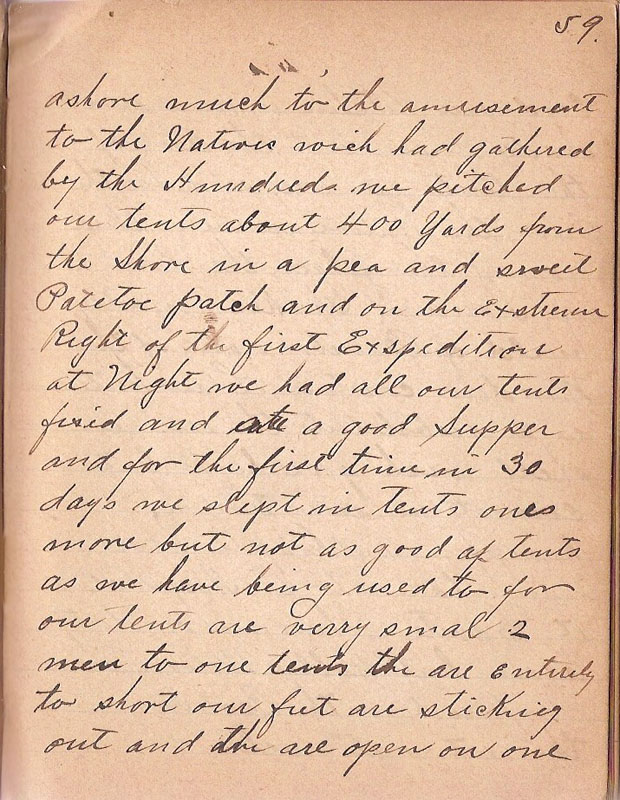 59.
ashore much to the amusement
to the Natives wich had gathered
by the Hundreds we pitched
our tents about 400 Yards from
the Shore in a pea and sweet
Patetoe patch and on the Extreme
Right of the first Expedition
at Night we had all our tents
fixed and ate a good Supper
and for the first time in 30
days we slept in tents ones
more but not as good of tents
as we have being used to for
our tents are verry smal 2
men to one tents the are Entirely
to short our feet are sticking
out and the are open on one